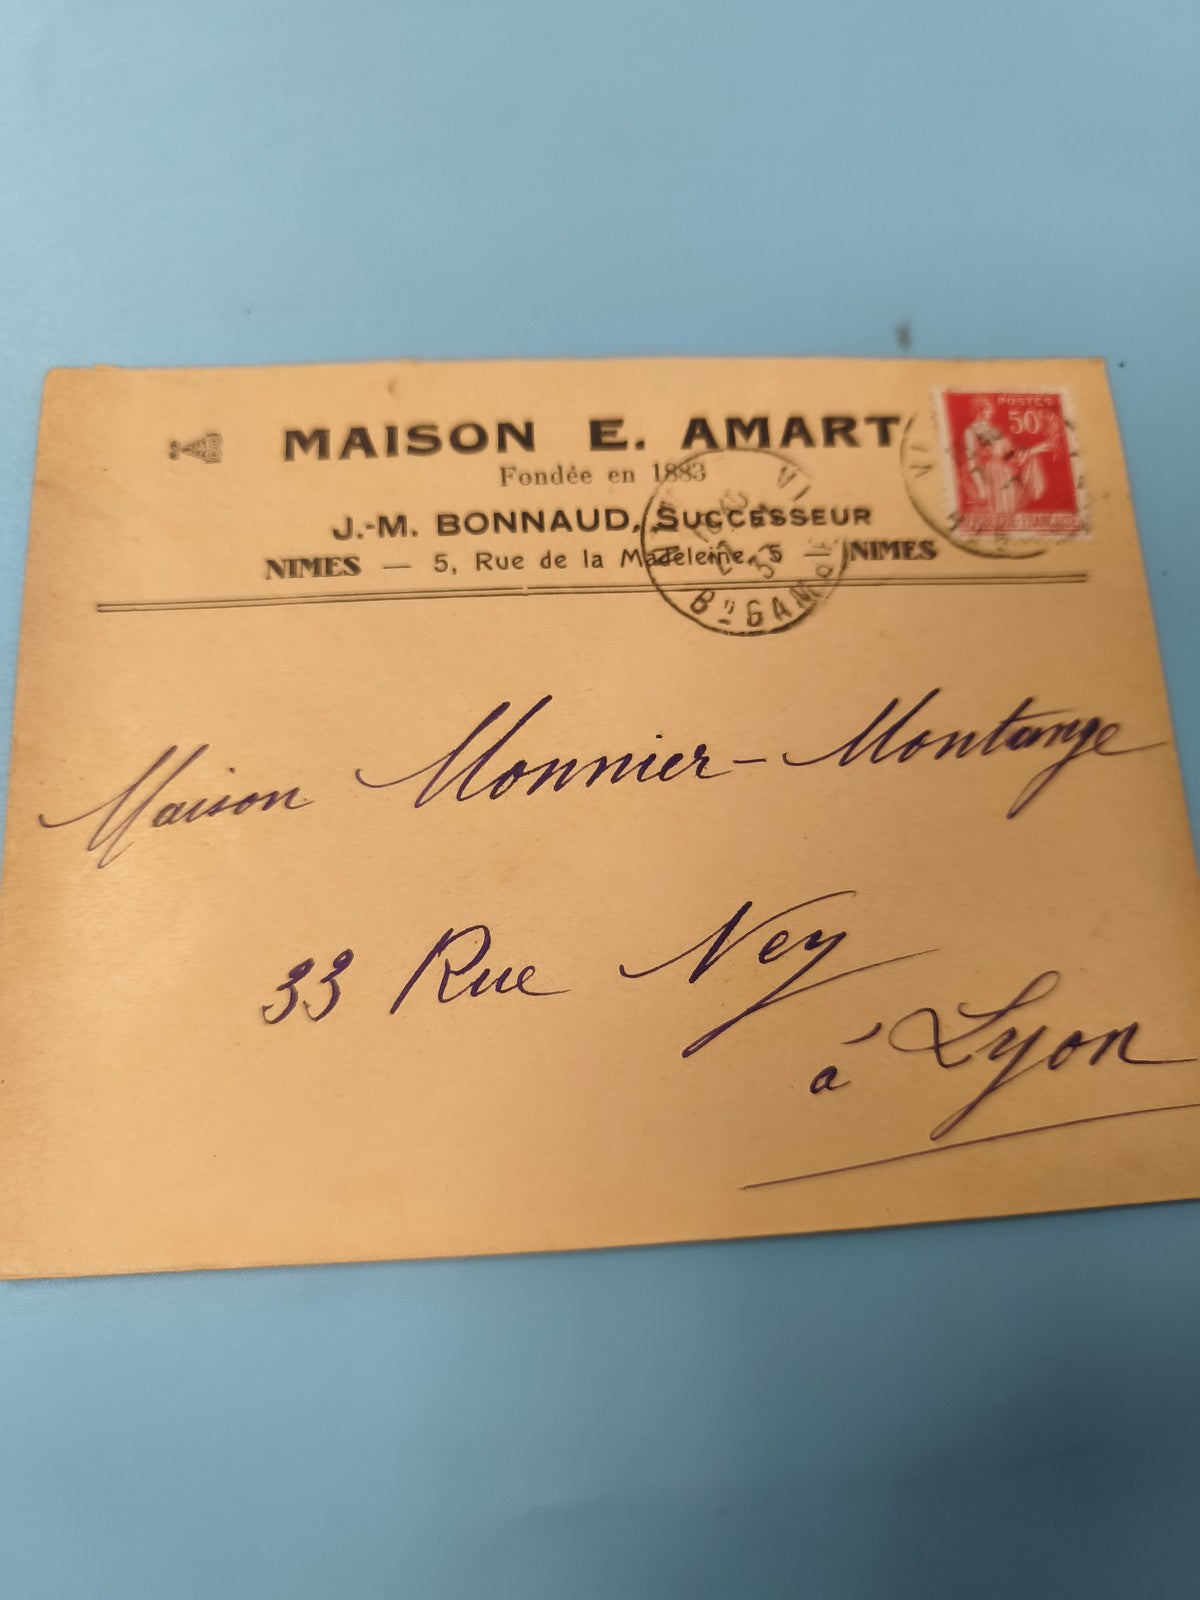 MAISON E. AMART
Fondée en 1883
J.-M. BONNAUD, SUCCESSEUR
NIMES — 5, Rue de la Madeleine, 5 — NIMES
POSTES
50c
REPUBLIQUE-FRANÇAISE
Bᴰ GAM
Maison Monnier-Montange
33 Rue Ney
à Lyon